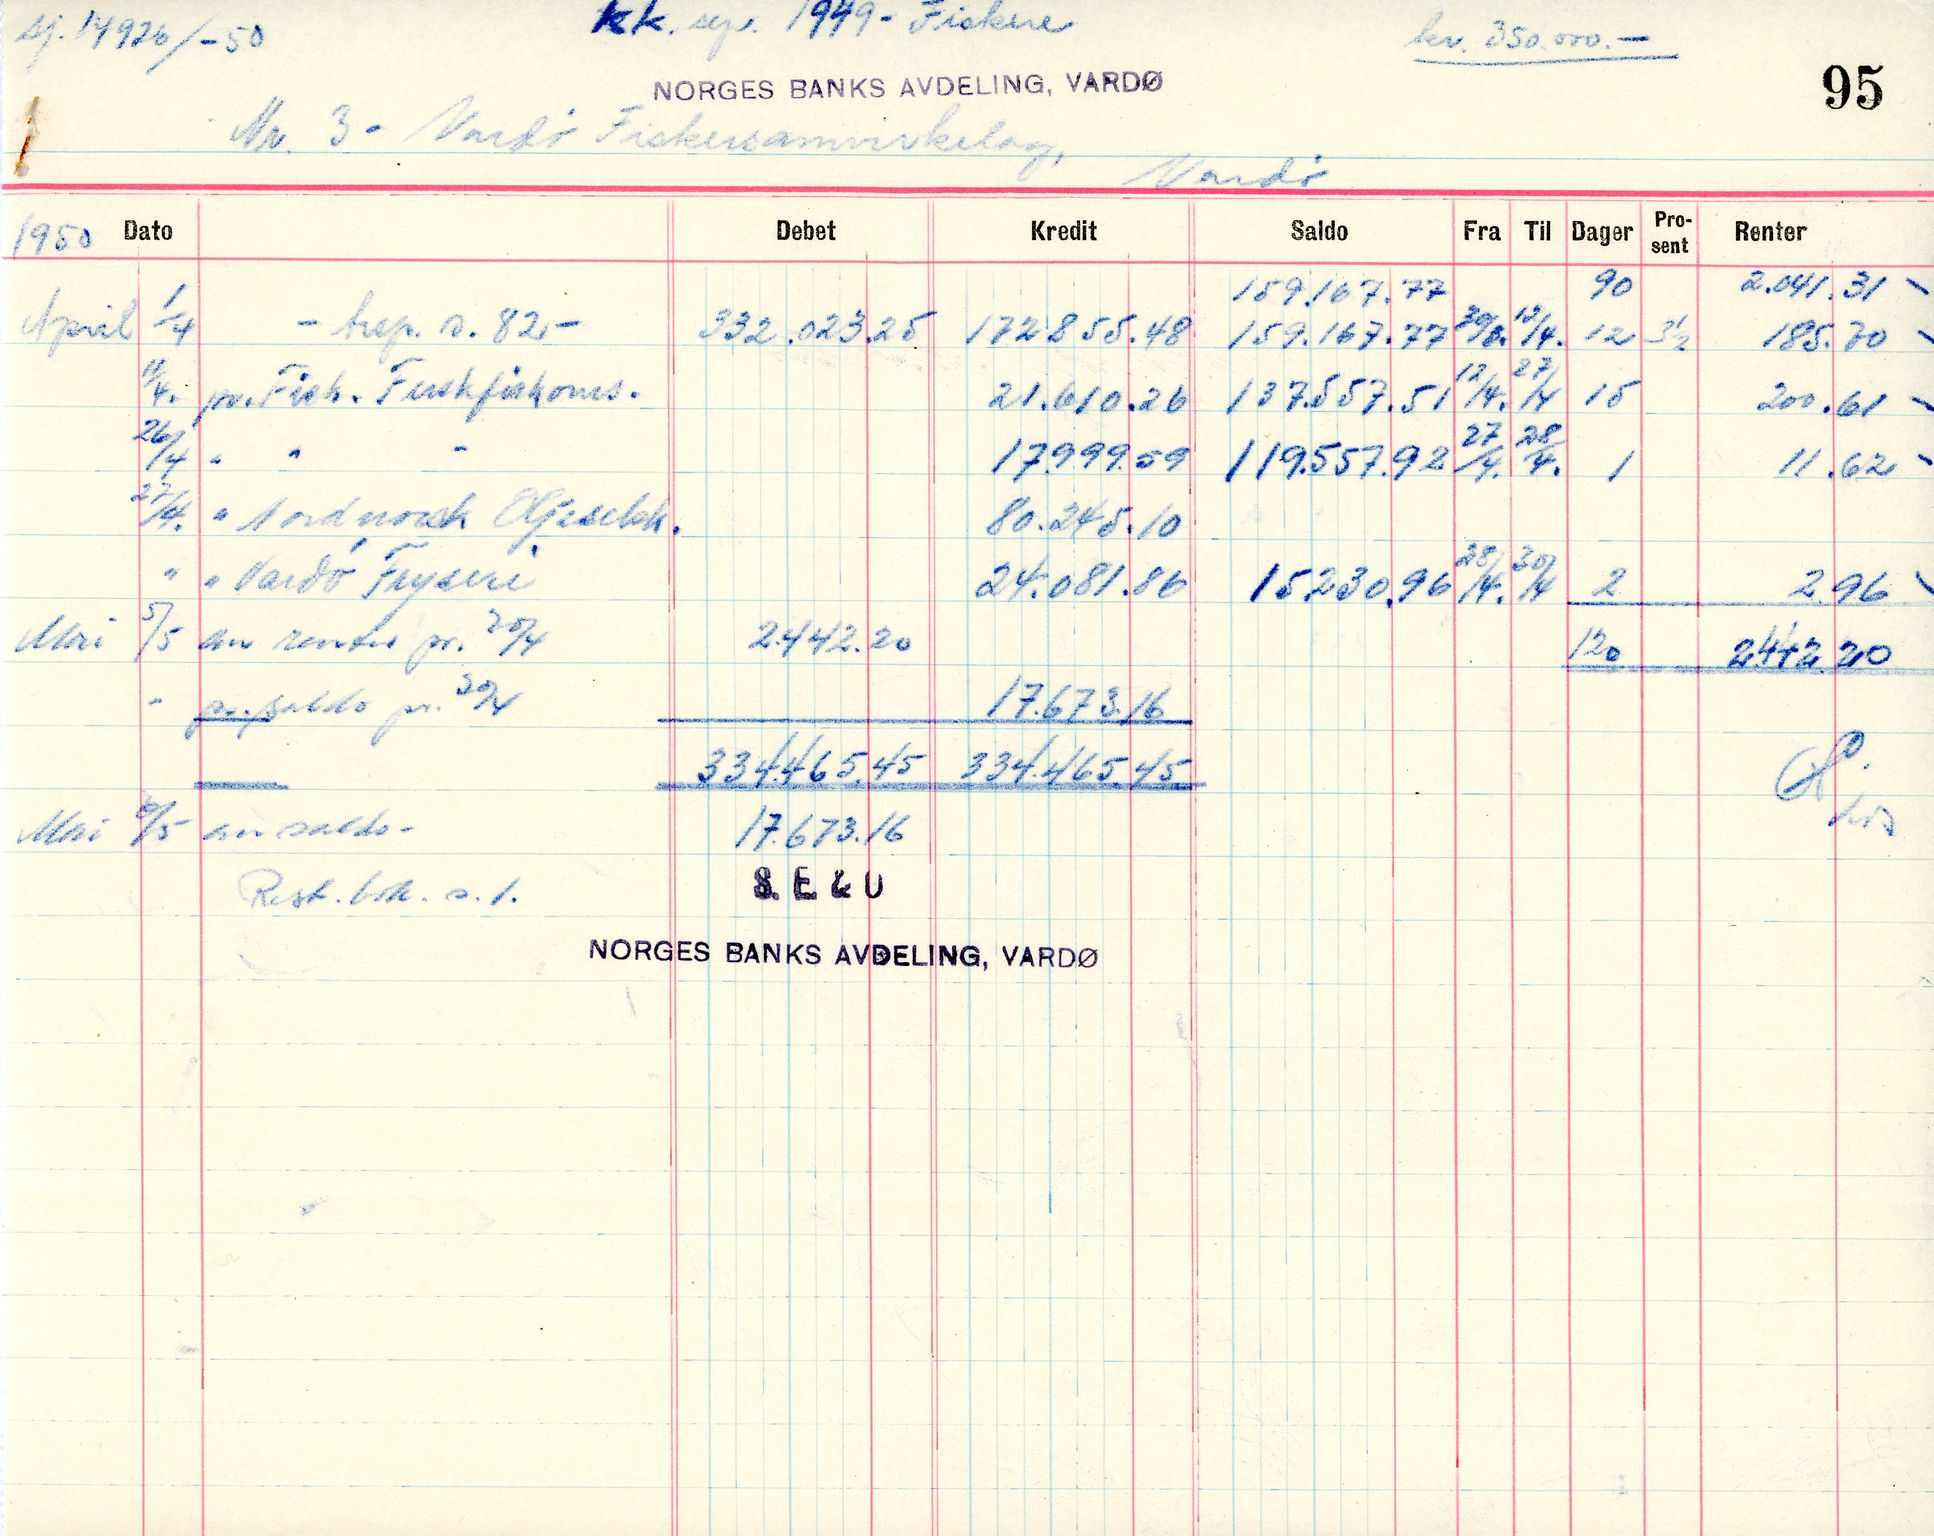 sj. 14926/-50 kk. sep. 1949 - Fiskere kr. 350.000.—
NORGES BANKS AVDELING, VARDØ 95
Nr. 3 - Vardø Fiskersamvirkelag,
Vardø
1950 Dato Debet Kredit Saldo Fra Til Dager Pro-sent Renter
159.167.77 90 2.041.31
April 1/4 - trsp. s. 82.- 332.023.25 172.855.48 159.167.77 30/3. 12/4. 12 3½ 185.70
11/4. pr. Fisk. Ferskfiskoms. 21.610.26 137.557.51 12/4. 27/4 15 200.61
26/4 " " - 17.999.59 119.557.92 27/4. 28/4. 1 11.62
27/4. " Nordnorsk 80.245.10
" " Vardø Fryseri 24.081.86 15.230.96 28/4. 30/4 2 2.96
Mai 5/5 an renter pr. 30/4 2.442.20 120 2442.20
" pr. saldo pr. 30/4 17.673.16
334.465.45 334.465.45
Mai 6/5 an saldo - 17.673.16
Rest. bok. s. 1. S. E & U
NORGES BANKS AVDELING, VARDØ